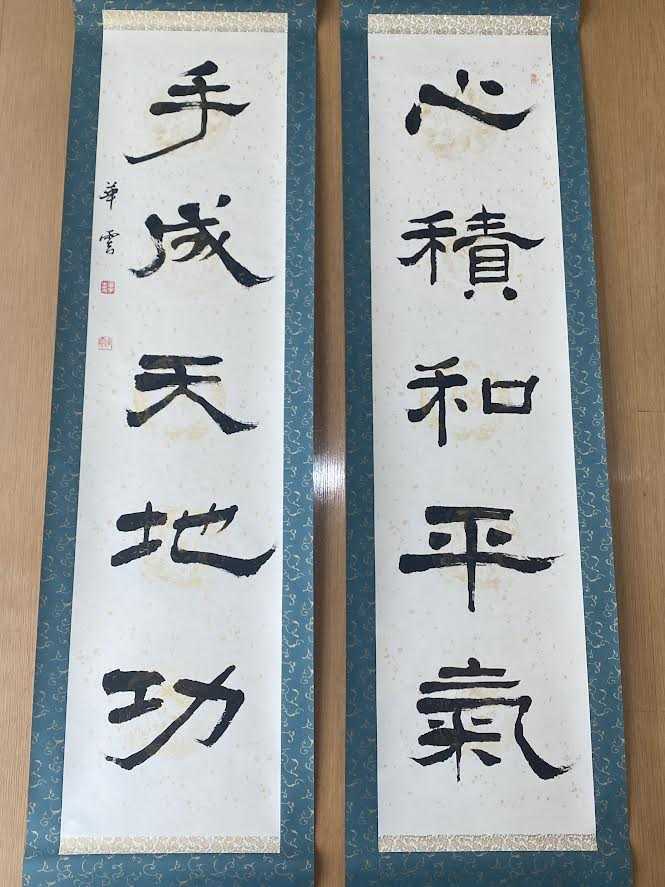 心積和平氣
手成天地功
華雲